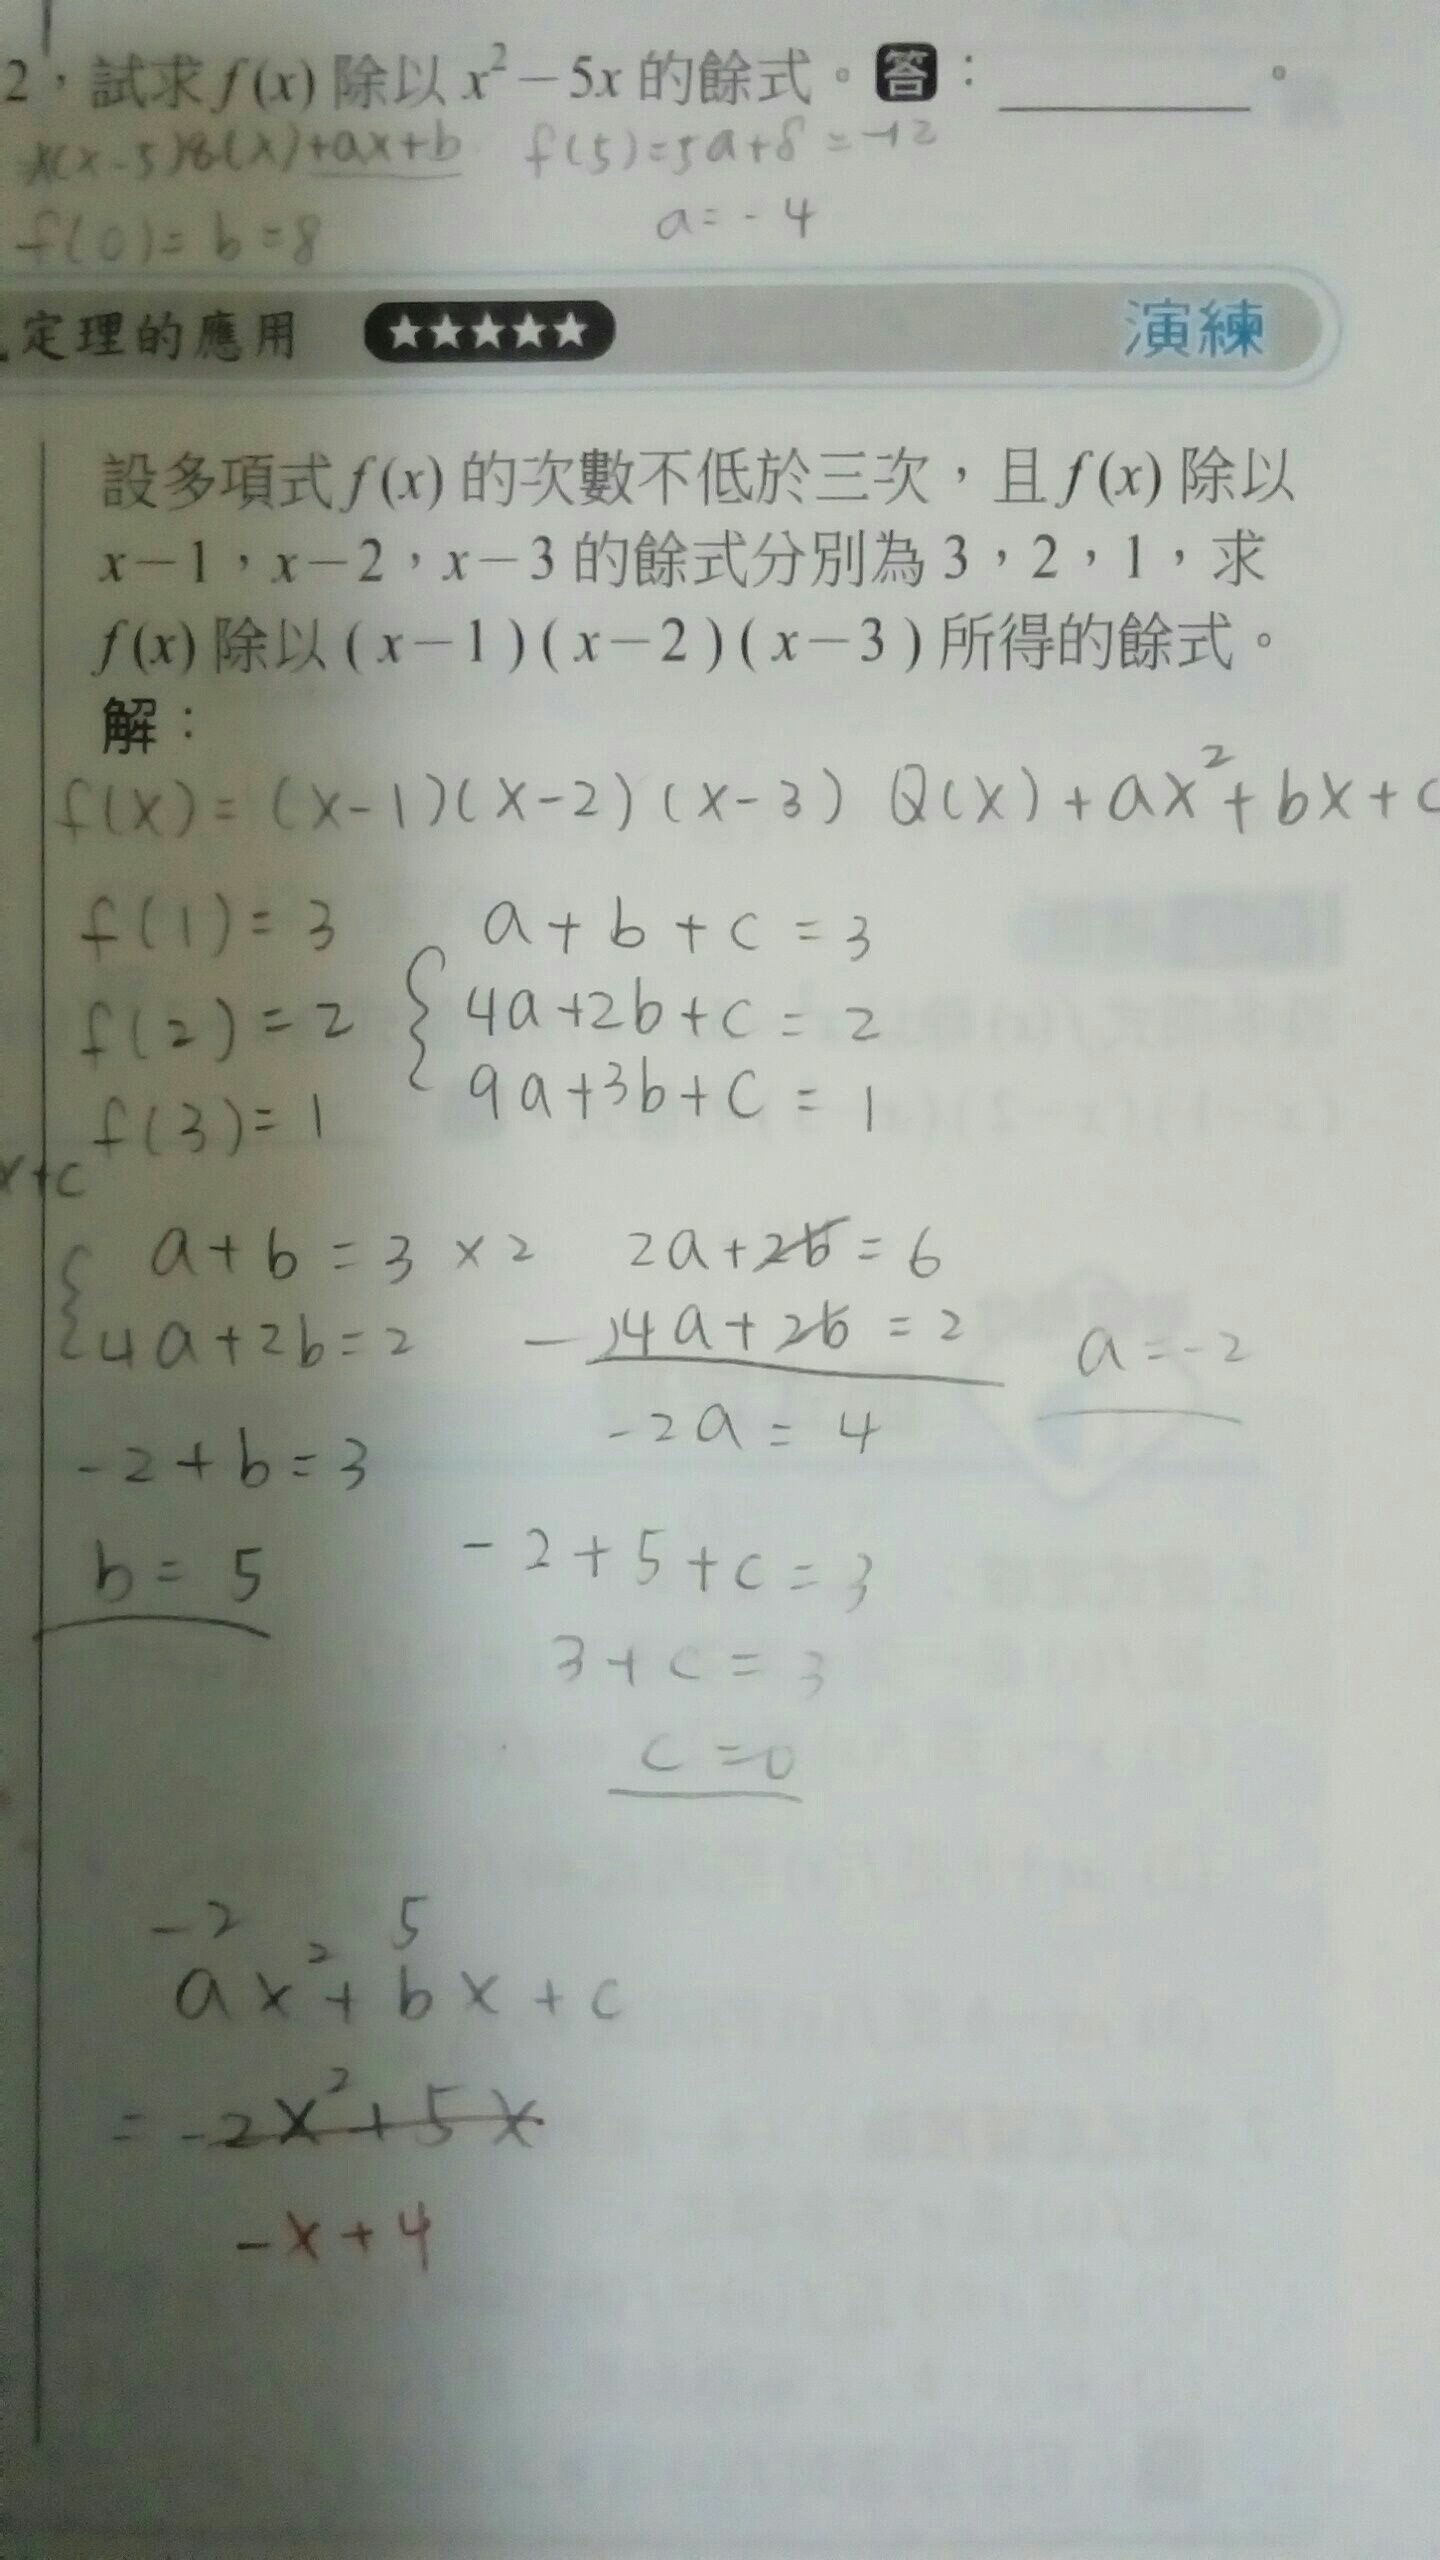 2，試求 f(x) 除以 x²－5x 的餘式。答：________。
x(x-5)Q(x)+ax+b  f(5)=5a+8=-12
f(0)=b=8  a=-4
定理的應用 ★★★★★ 演練
設多項式 f(x) 的次數不低於三次，且 f(x) 除以
x－1，x－2，x－3 的餘式分別為 3，2，1，求
f(x) 除以 (x－1)(x－2)(x－3) 所得的餘式。
解：
f(x)=(x-1)(x-2)(x-3) Q(x)+ax²+bx+c
f(1)=3  a+b+c=3
f(2)=2  4a+2b+c=2
f(3)=1  9a+3b+c=1
x+c
a+b=3 ×2  2a+2b=6
4a+2b=2  -)4a+2b=2  a=-2
-2+b=3  -2a=4
b=5  -2+5+c=3
3+c=3
c=0
-2  5
ax²+bx+c
=-2x²+5x
-x+4